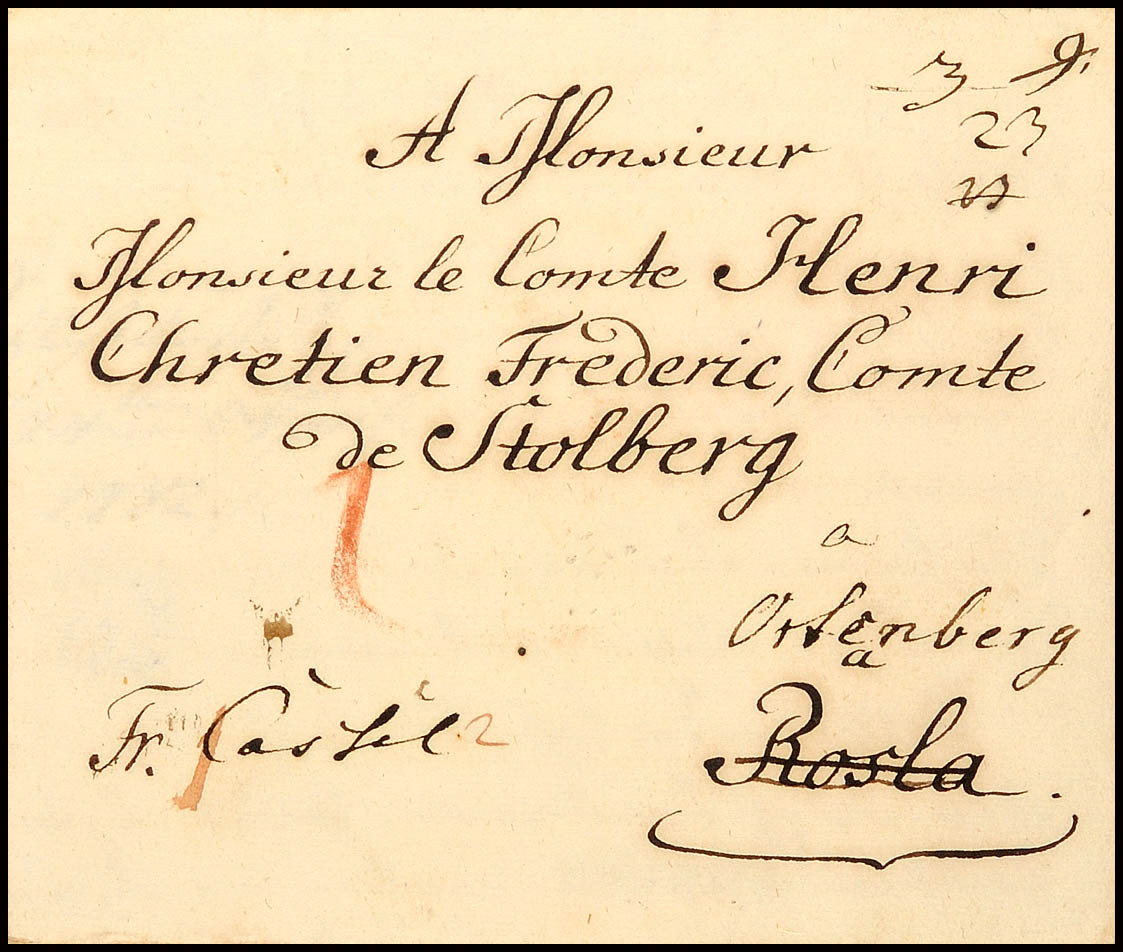 3 9.
23
A Monsieur
Monsieur le Comte Henri
Chretien Frederic, Comte
de Stolberg
a
Ortenberg
a
Rosla.
Fr. Cassel 2